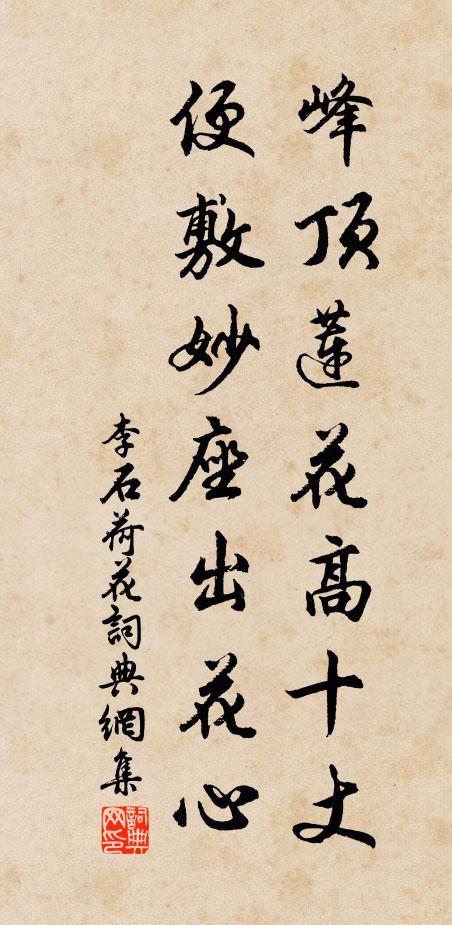 峰頂蓮花高十丈
便敷妙座出花心
李石荷花詞典網集
詞典网印